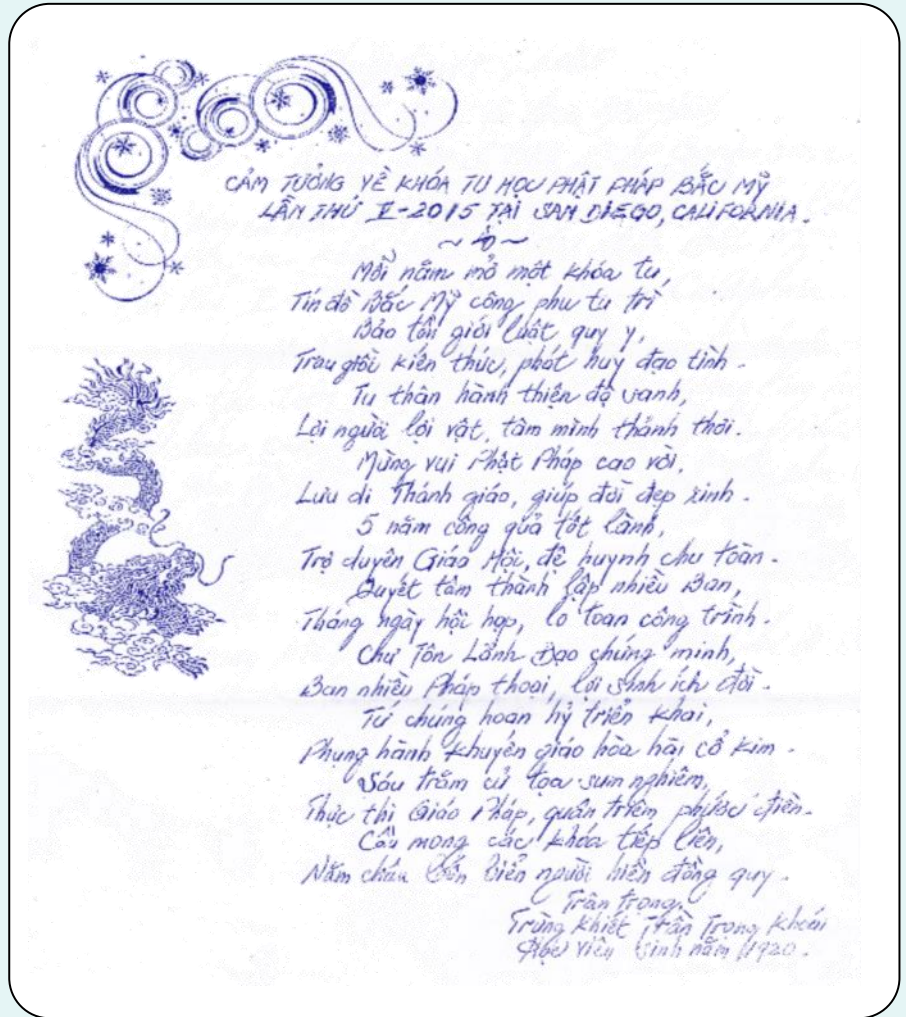 CẢM TƯỞNG VỀ KHÓA TU HỌC PHẬT PHÁP BẮC MỸ
LẦN THỨ V-2015 TẠI SAN DIEGO, CALIFORNIA.
Mỗi năm mở một khóa tu,
Tín đồ Bắc Mỹ công phu tu trì
Bảo tồn giới luật quy y,
Trau giồi kiến thức, phát huy đạo tình.
Tu thân hành thiện độ sanh,
Lợi người lợi vật, tâm mình thảnh thơi.
Mừng vui Phật Pháp cao vời,
Lưu di Thánh giáo, giúp đời đẹp xinh.
5 năm công quả tốt lành,
Trợ duyên Giáo Hội, đệ huynh chu toàn.
Quyết tâm thành lập nhiều Ban,
Tháng ngày hội họp, lo toan công trình.
Chư Tôn Lãnh Đạo chứng minh,
Ban nhiều Pháp thoại, lợi sinh ích đời.
Tứ chúng hoan hỷ triển khai,
Phụng hành khuyến giáo hòa hài cổ kim.
Sáu trăm cử tọa sum nghiêm,
Thực thi Giáo Pháp, quán triêm phước điền.
Cầu mong các khóa tiếp liên,
Năm châu bốn biển người hiền đồng quy.
Trân trọng,
Trừng Khiết Trần Trọng Khoái
Học viên sinh năm 1920.